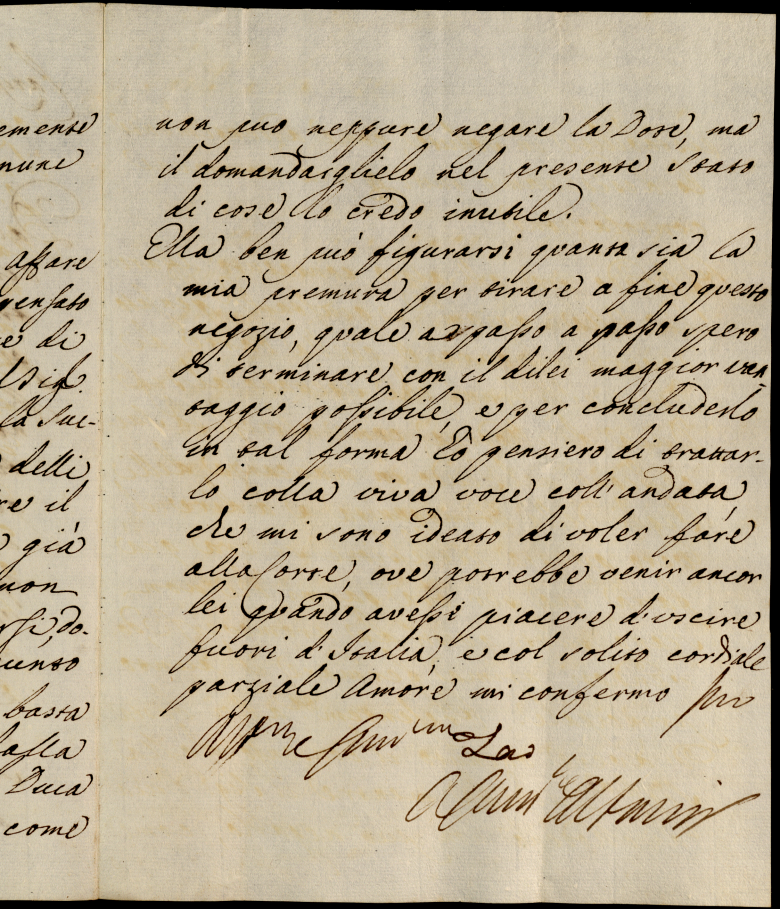 emente
mune
affare
pensato
e di
l Sig.
la suc-
delli
re il
già
non
rsi, do-
unto
basta
dalla
Duca
come
non può neppure negare la Dote, ma
il domandarglielo nel presente stato
di cose lo credo inutile.
Ella ben può figurarsi quanta sia la
mia premura per tirare a fine questo
negozio, quale a passo a passo spero
di terminare con il dilei maggior van-
taggio possibile, e per concluderlo
in tal forma hò pensiero di trattar-
lo colla viva voce coll' andata,
che mi sono ideato di voler fare
alla Corte, ove potrebbe venir ancor
lei quando avessi piacere d'uscire
fuori d'Italia, e col solito cordiale
parziale Amore mi confermo suo